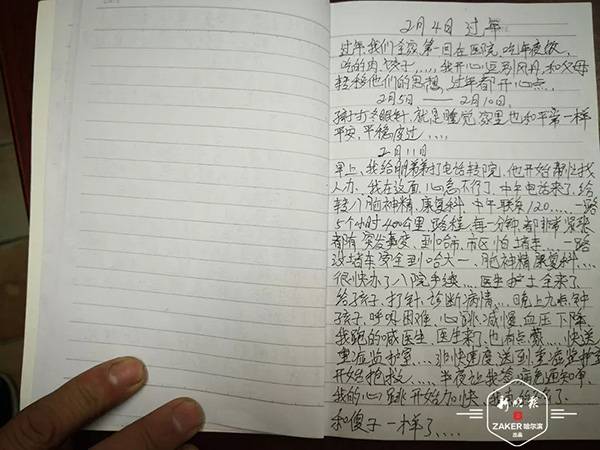 2月4日 过年
过年,我们全家第一回在医院,吃年夜饭,
吃的肉、饺子,....,我开心逗别风月,和父母
转移他们的思想,过年都开心点.
2月5日——2月10日.
孩子打老眼针,就是睡觉,家里也和平常一样
平安,平稳度过....
2月11日
早上,我给朋弟打电话转院,他开始帮忙找
人办,我在这面,心急不行了.中午电话来了,给
转入脑神精、康复科,中午联系120....一路
5个小时400公里,路程,每一分钟都非常紧张
都有突发事变,到哈市,市区怕堵车....一路
没堵车安全到哈大一、脑神精康复科....
很快办了入院手续....医生护士全来了
给孩子,打针,诊断病情....晚上九点钟
孩子,呼吸困难,心跳减慢,血压下降
我跑的喊医生,医生来了,也有点蒙....快送
重症监护室....非快速度送到重症监护室
开始抢救....半夜让我签病危通知单,
我的心跳开始加快,
和傻子一样了....
新晚报
ZAKER 哈尔滨
出品